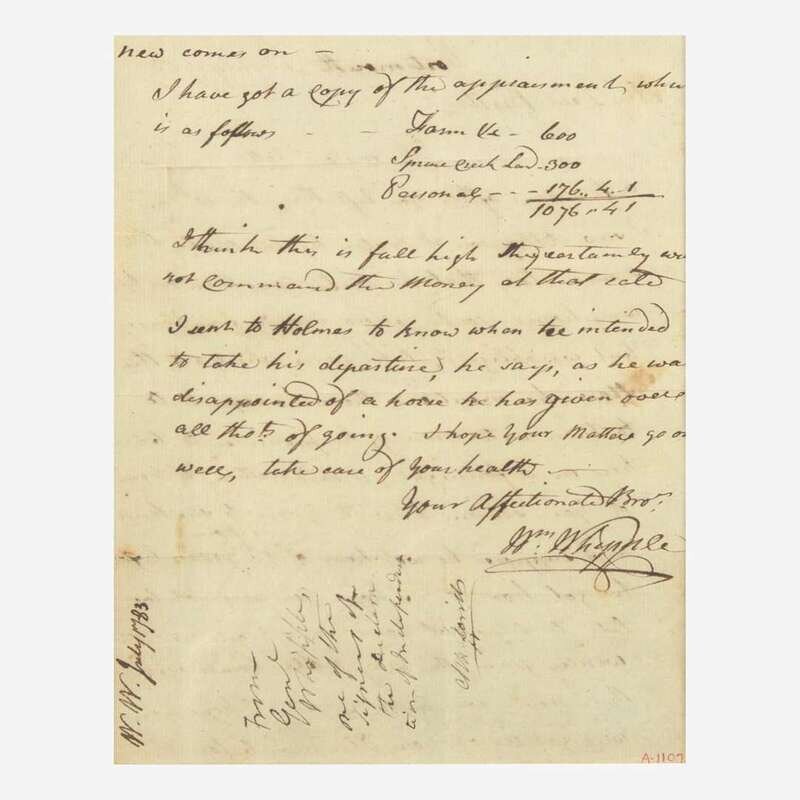 new comes on —
I have got a copy of the appraisment, whic
is as follows - - Farm &c - 600
Spruce Creek Land - 300
Personal - - - 176 .. 4 .. 1
1076 .. 4 1
I think this is full high they certainly wi
not command the money at that rate
I sent to Holmes to know when he intended
to take his departure, he says, as he wa
disappointed of a horse he has given over
all thots. of going. I hope your matters go on
well, take care of your health —
Your Affectionate Bror.
Wm Whipple
W. W. July 1783
From
Genl
Whipple,
one of the
signers of
the declara
tion of Independen
A-1107